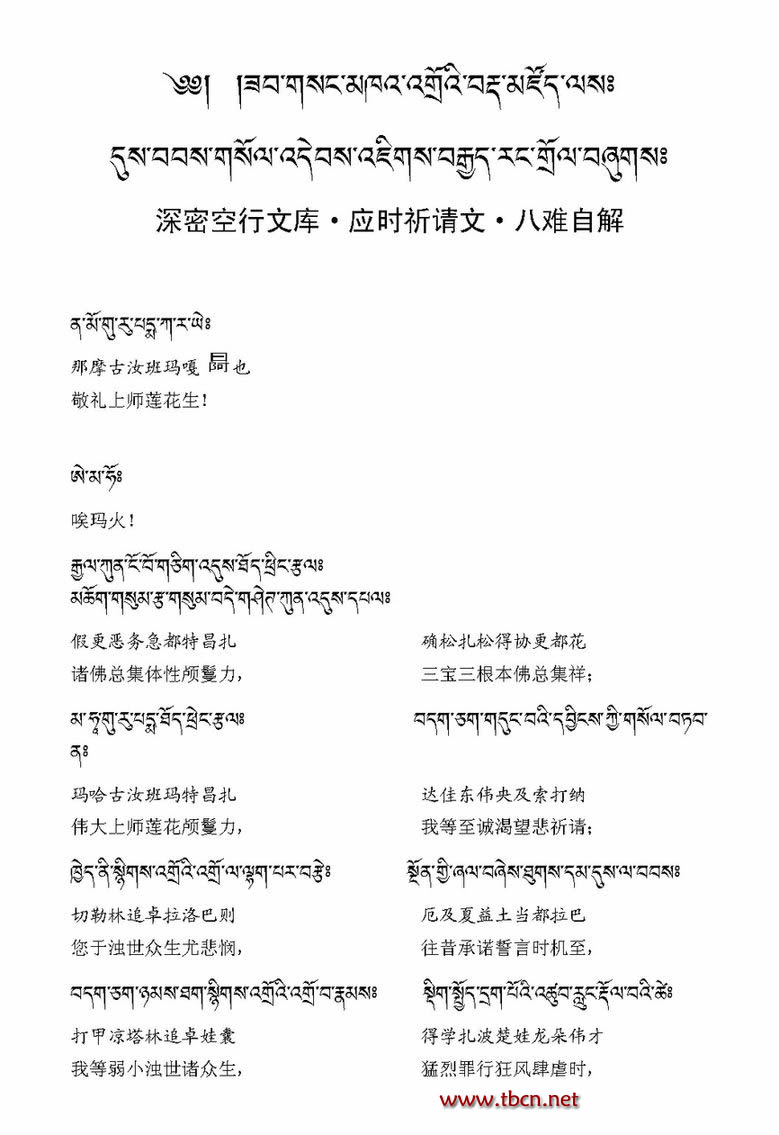 ༄༅། །ཟབ་གསང་མཁའ་འགྲོའི་བརྡ་མཛོད་ལས༔
དུས་བབས་གསོལ་འདེབས་འཇིགས་བརྒྱད་རང་གྲོལ་བཞུགས༔
深密空行文库·应时祈请文·八难自解
ན་མོ་གུ་རུ་པདྨ་ཀ་ར་ཡེ༔
那摩古汝班玛嘎 也
敬礼上师莲花生!
ཨེ་མ་ཧོ༔
唉玛火!
རྒྱལ་ཀུན་ངོ་བོ་གཅིག་འདུས་ཐོད་ཕྲིང་རྩལ༔
མཆོག་གསུམ་རྩ་གསུམ་བདེ་གཤེཊ་ཀུན་འདུས་དཔལ༔
假更恶务急都特昌扎 确松扎松得协更都花
诸佛总集体性颅鬘力, 三宝三根本佛总集祥;
མ་ཧཱ་གུ་རུ་པདྨ་ཐོད་ཕྲེང་རྩལ༔ བདག་ཅག་གདུང་བའི་དབྱིངས་ཀྱི་གསོལ་བཏབ་
ན༔
玛哈古汝班玛特昌扎 达佳东伟央及索打纳
伟大上师莲花颅鬘力, 我等至诚渴望悲祈请;
ཁྱེད་ནི་སྙིགས་འགྲོའི་འགྲོ་ལ་ལྷག་པར་བརྩེ༔ སྔོན་གྱི་ཞལ་བཞེས་ཐུགས་དམ་དུས་ལ་བབས༔
切勒林追卓拉洛巴则 厄及夏益土当都拉巴
您于浊世众生尤悲悯, 往昔承诺誓言时机至,
བདག་ཅག་ཉམས་ཐག་སྙིགས་འགྲོའི་འགྲོ་བ་རྣམས༔ སྡིག་སྤྱོད་དྲག་པོའི་འཚུབ་རླུང་རྡོལ་བའི་ཚེ༔
打甲凉塔林追卓娃囊 得学扎波楚娃龙朵伟才
我等弱小浊世诸众生, 猛烈罪行狂风肆虐时,
www.tbcn.net